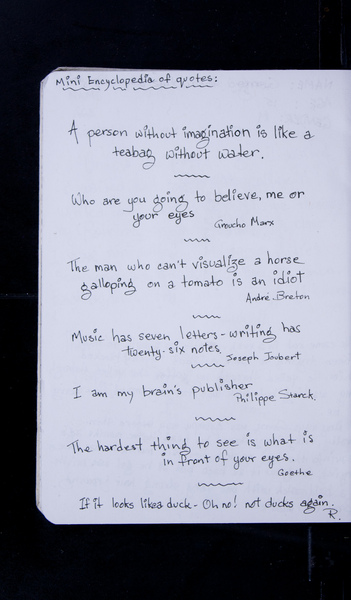 Mini Encyclopedia of quotes:
A person without imagination is like a
teabag without water.
Who are you going to believe, me or
your eyes
Groucho Marx
The man who can't visualize a horse
galloping on a tomato is an idiot
André-Breton
Music has seven letters-writing has
twenty-six notes.
Joseph Joubert
I am my brain's publisher
Philippe Starck.
The hardest thing to see is what is
in front of your eyes.
Goethe
If it looks like a duck - Oh no! not ducks again.
R.